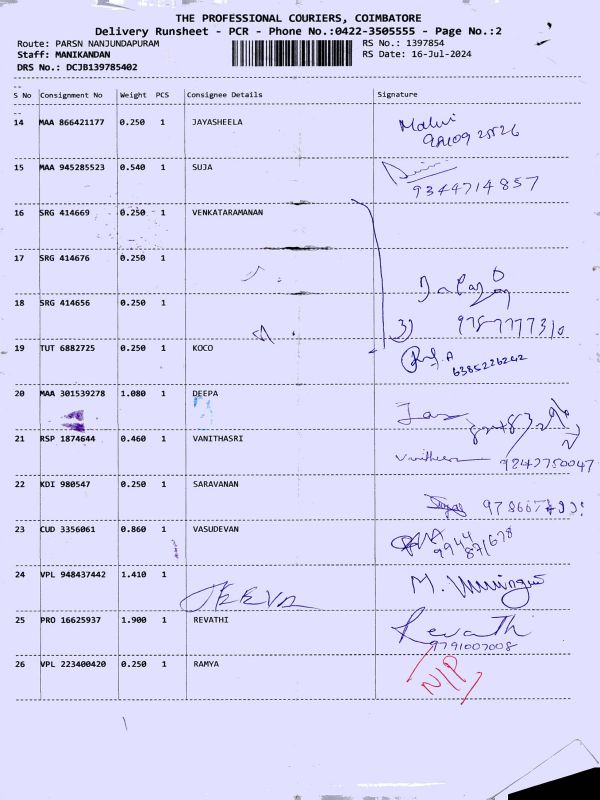 THE PROFESSIONAL COURIERS, COIMBATORE
Delivery Runsheet - PCR - Phone No.:0422-3505555 - Page No.:2
Route: PARSN NANJUNDAPURAM
RS No.: 1397854
Staff: MANIKANDAN
RS Date: 16-Jul-2024
DRS No.: DCJB139785402
S No Consignment No Weight PCS Consignee Details Signature
14 MAA 866421177 0.250 1 JAYASHEELA
15 MAA 945285523 0.540 1 SUJA
9344714857
16 SRG 414669 0.250 1 VENKATARAMANAN
17 SRG 414676 0.250 1
18 SRG 414656 0.250 1
3)
19 TUT 6882725 0.250 1 KOCO
6385226242
20 MAA 301539278 1.080 1 DEEPA
21 RSP 1874644 0.460 1 VANITHASRI
9242750047
22 KDI 980547 0.250 1 SARAVANAN
23 CUD 3356061 0.860 1 VASUDEVAN
9944
871678
24 VPL 948437442 1.410 1
JEEVA
25 PRO 16625937 1.900 1 REVATHI Revathi
9791007008
26 VPL 223400420 0.250 1 RAMYA N/P